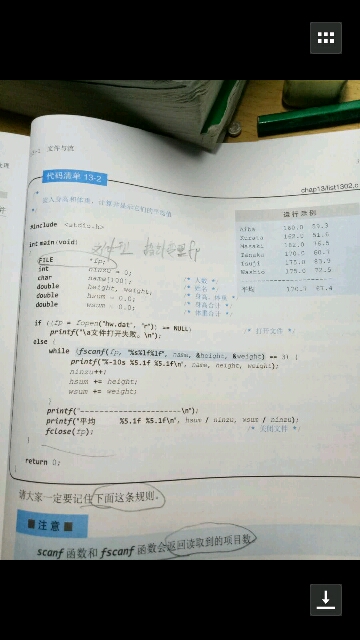 13-1 文件与流
代码清单 13-2
chap13/list1302.c
读入身高和体重，计算并显示它们的平均值
*/
#include <stdio.h>
int main(void)
{
FILE *fp;
int ninzu = 0; /* 人数 */
char name[100]; /* 姓名 */
double height, weight; /* 身高，体重 */
double hsum = 0.0; /* 身高合计 */
double wsum = 0.0; /* 体重合计 */
if ((fp = fopen("hw.dat", "r")) == NULL) /* 打开文件 */
printf("\a文件打开失败。\n");
else {
while (fscanf(fp, "%s%lf%lf", name, &height, &weight) == 3) {
printf("%-10s %5.1f %5.1f\n", name, height, weight);
ninzu++;
hsum += height;
wsum += weight;
}
printf("----------------------\n");
printf("平均 %5.1f %5.1f\n", hsum / ninzu, wsum / ninzu);
fclose(fp); /* 关闭文件 */
}
return 0;
}
运行示例
Aiba 160.0 59.3
Kurato 162.0 51.6
Masaki 182.0 76.5
Tanaka 170.0 60.7
Tsuji 175.0 83.9
Washio 175.0 72.5
平均 170.7 67.4
请大家一定要记住下面这条规则。
■注意■
scanf 函数和 fscanf 函数会返回读取到的项目数。